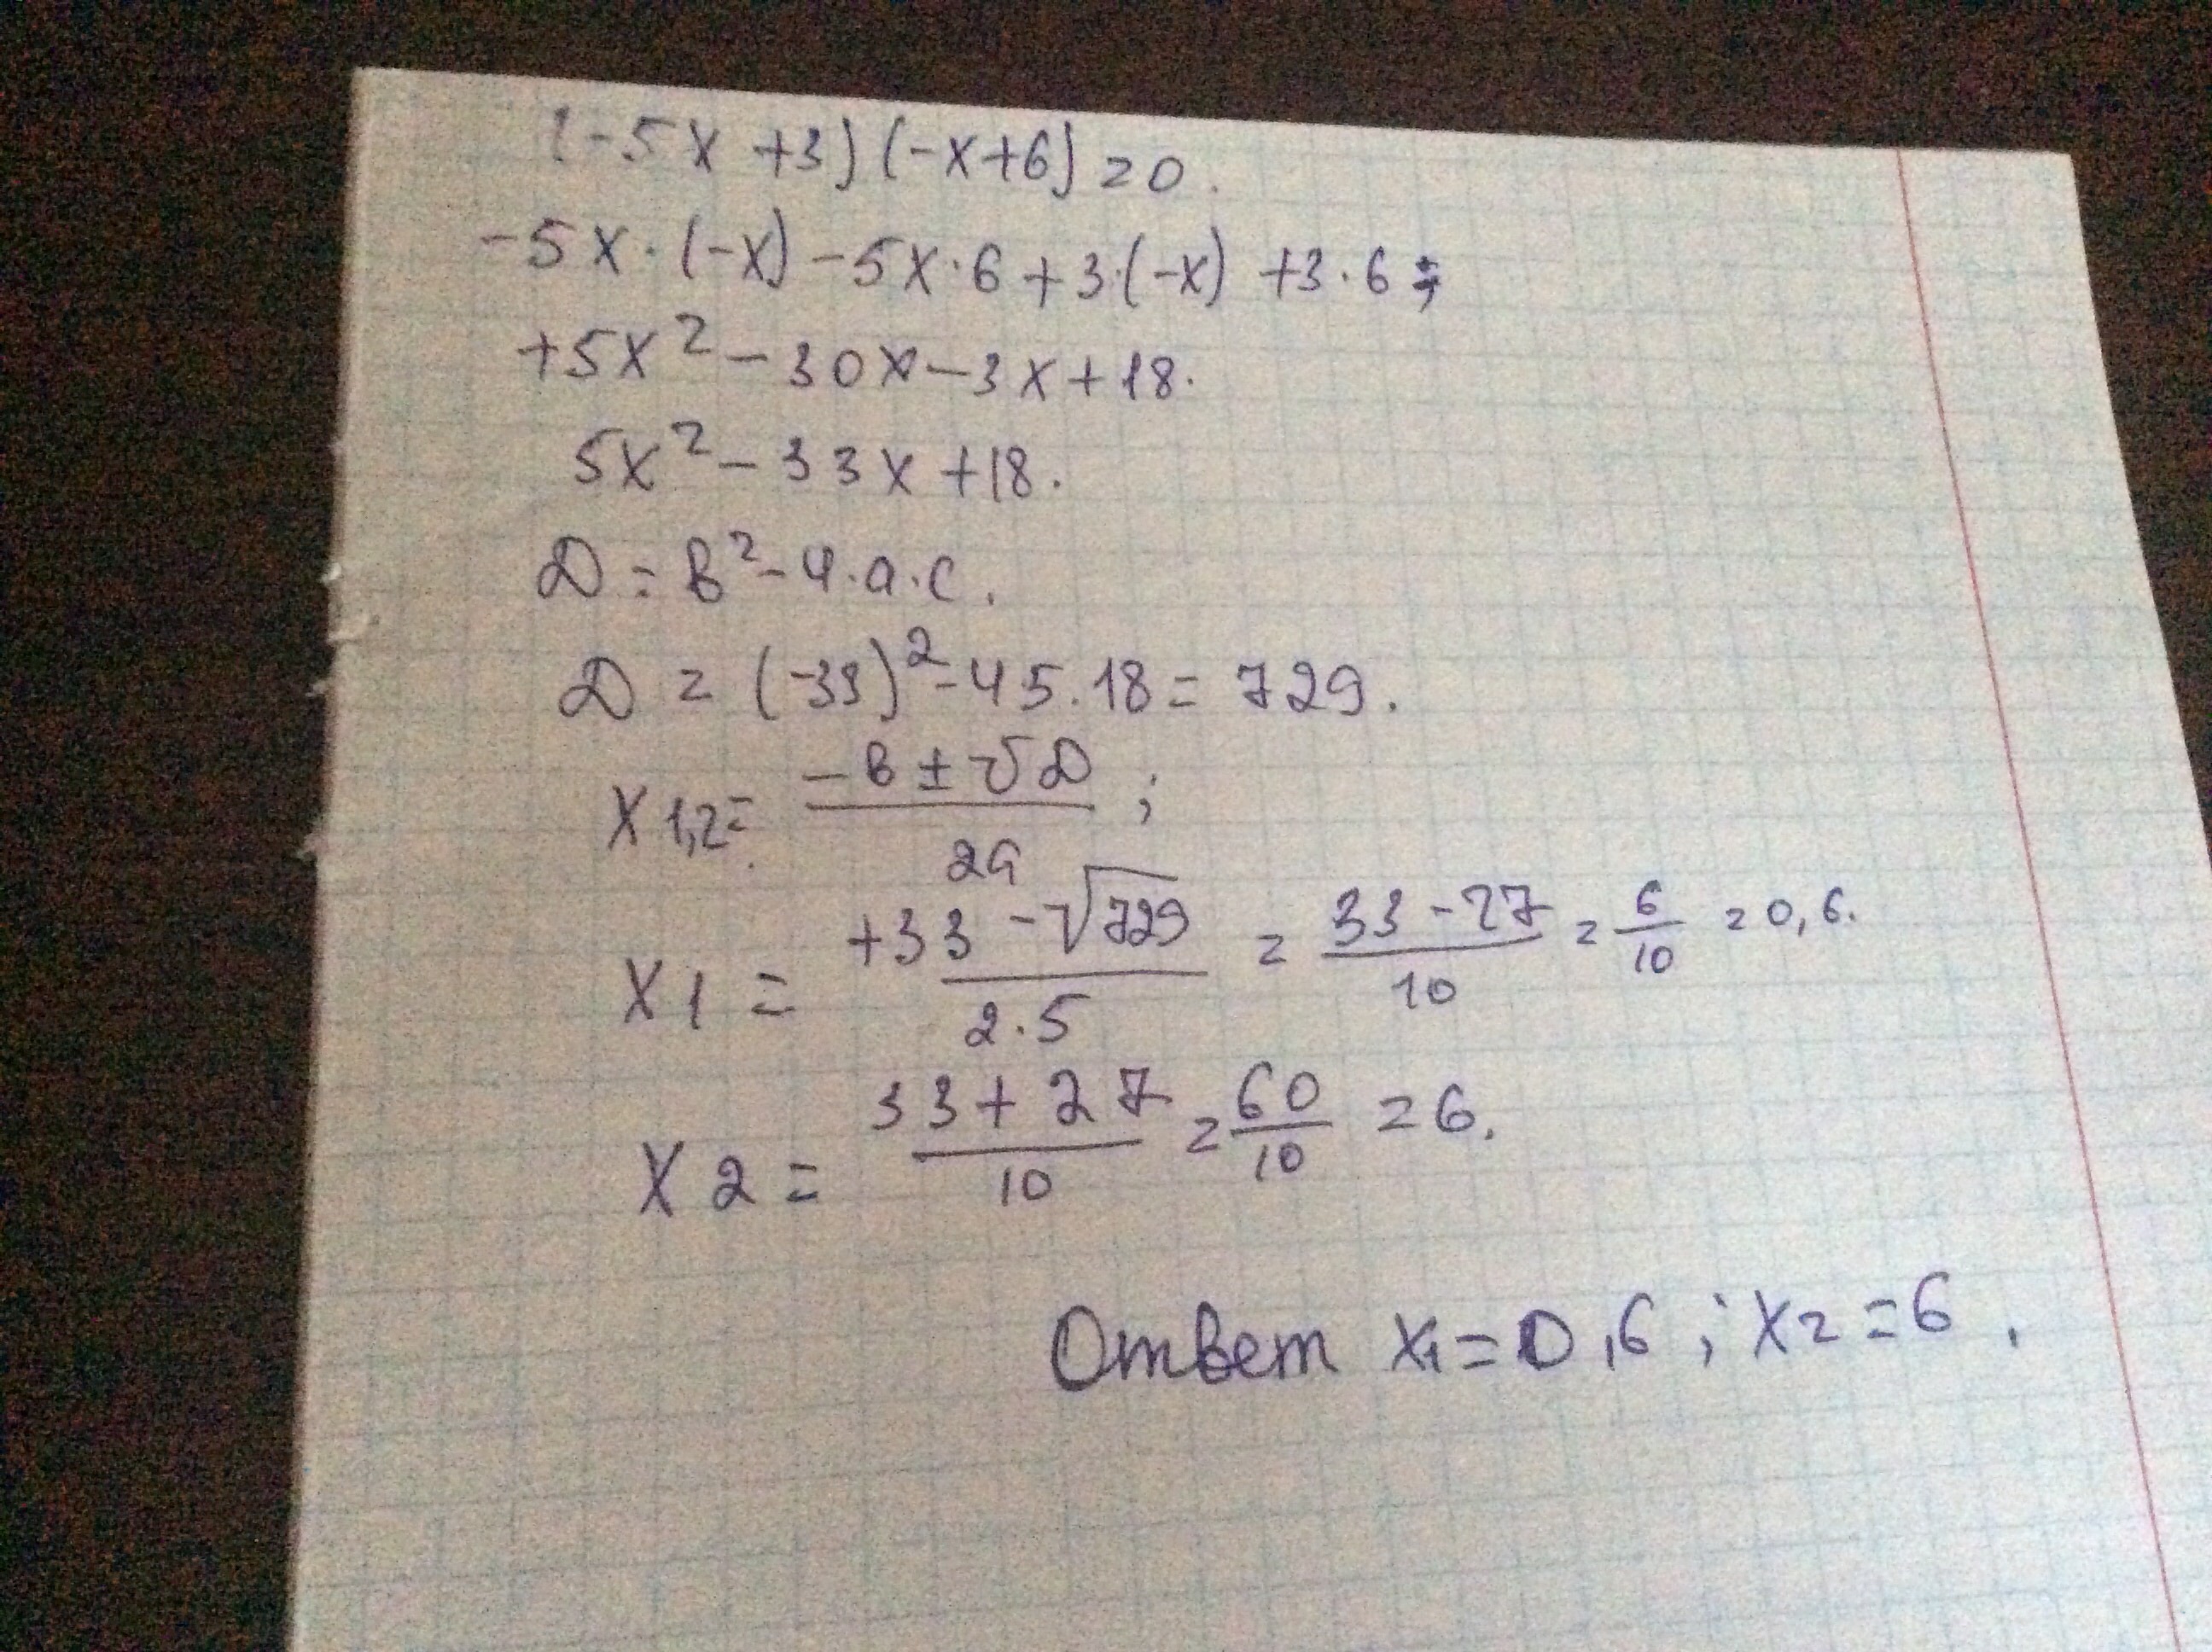 (-5x+3)(-x+6)=0.
-5x·(-x)-5x·6+3·(-x)+3·6;
+5x²-30x-3x+18.
5x²-33x+18.
D=в²-4·a·c.
D=(-33)²-4·5·18=729.
x1,2=(-в±√D)/2a;
x1=(+33-√729)/(2·5)=(33-27)/10=6/10=0,6.
x2=(33+27)/10=60/10=6.
Ответ x1=0,6; x2=6.